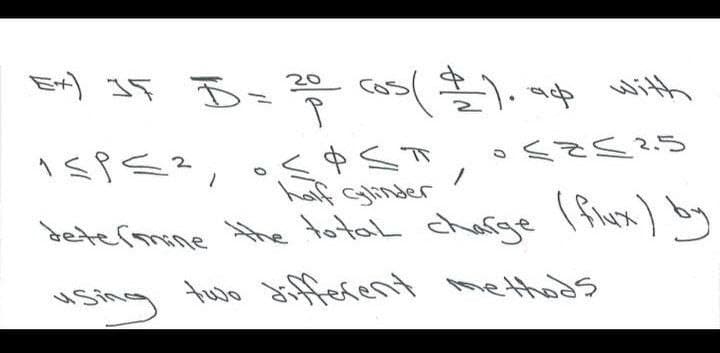 Ex) If D̅ = 20/ρ cos(φ/2). aφ with
1 ≤ ρ ≤ 2, 0 ≤ φ ≤ π, 0 ≤ z ≤ 2.5
half cylinder
determine the total charge (flux) by
using two different methods